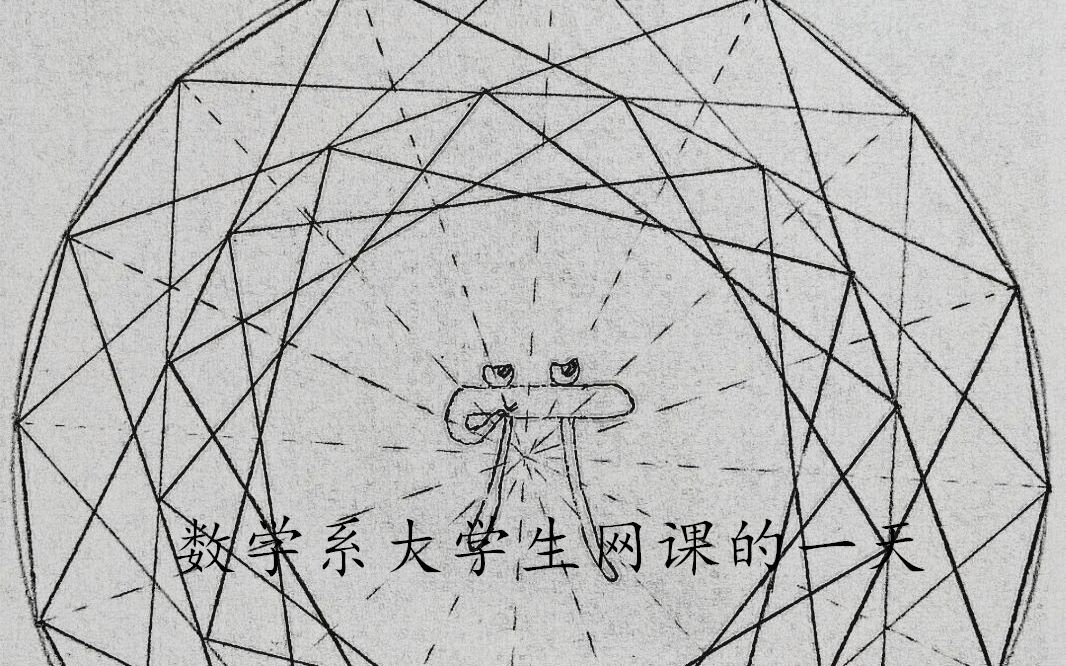 数学系大学生网课的一天